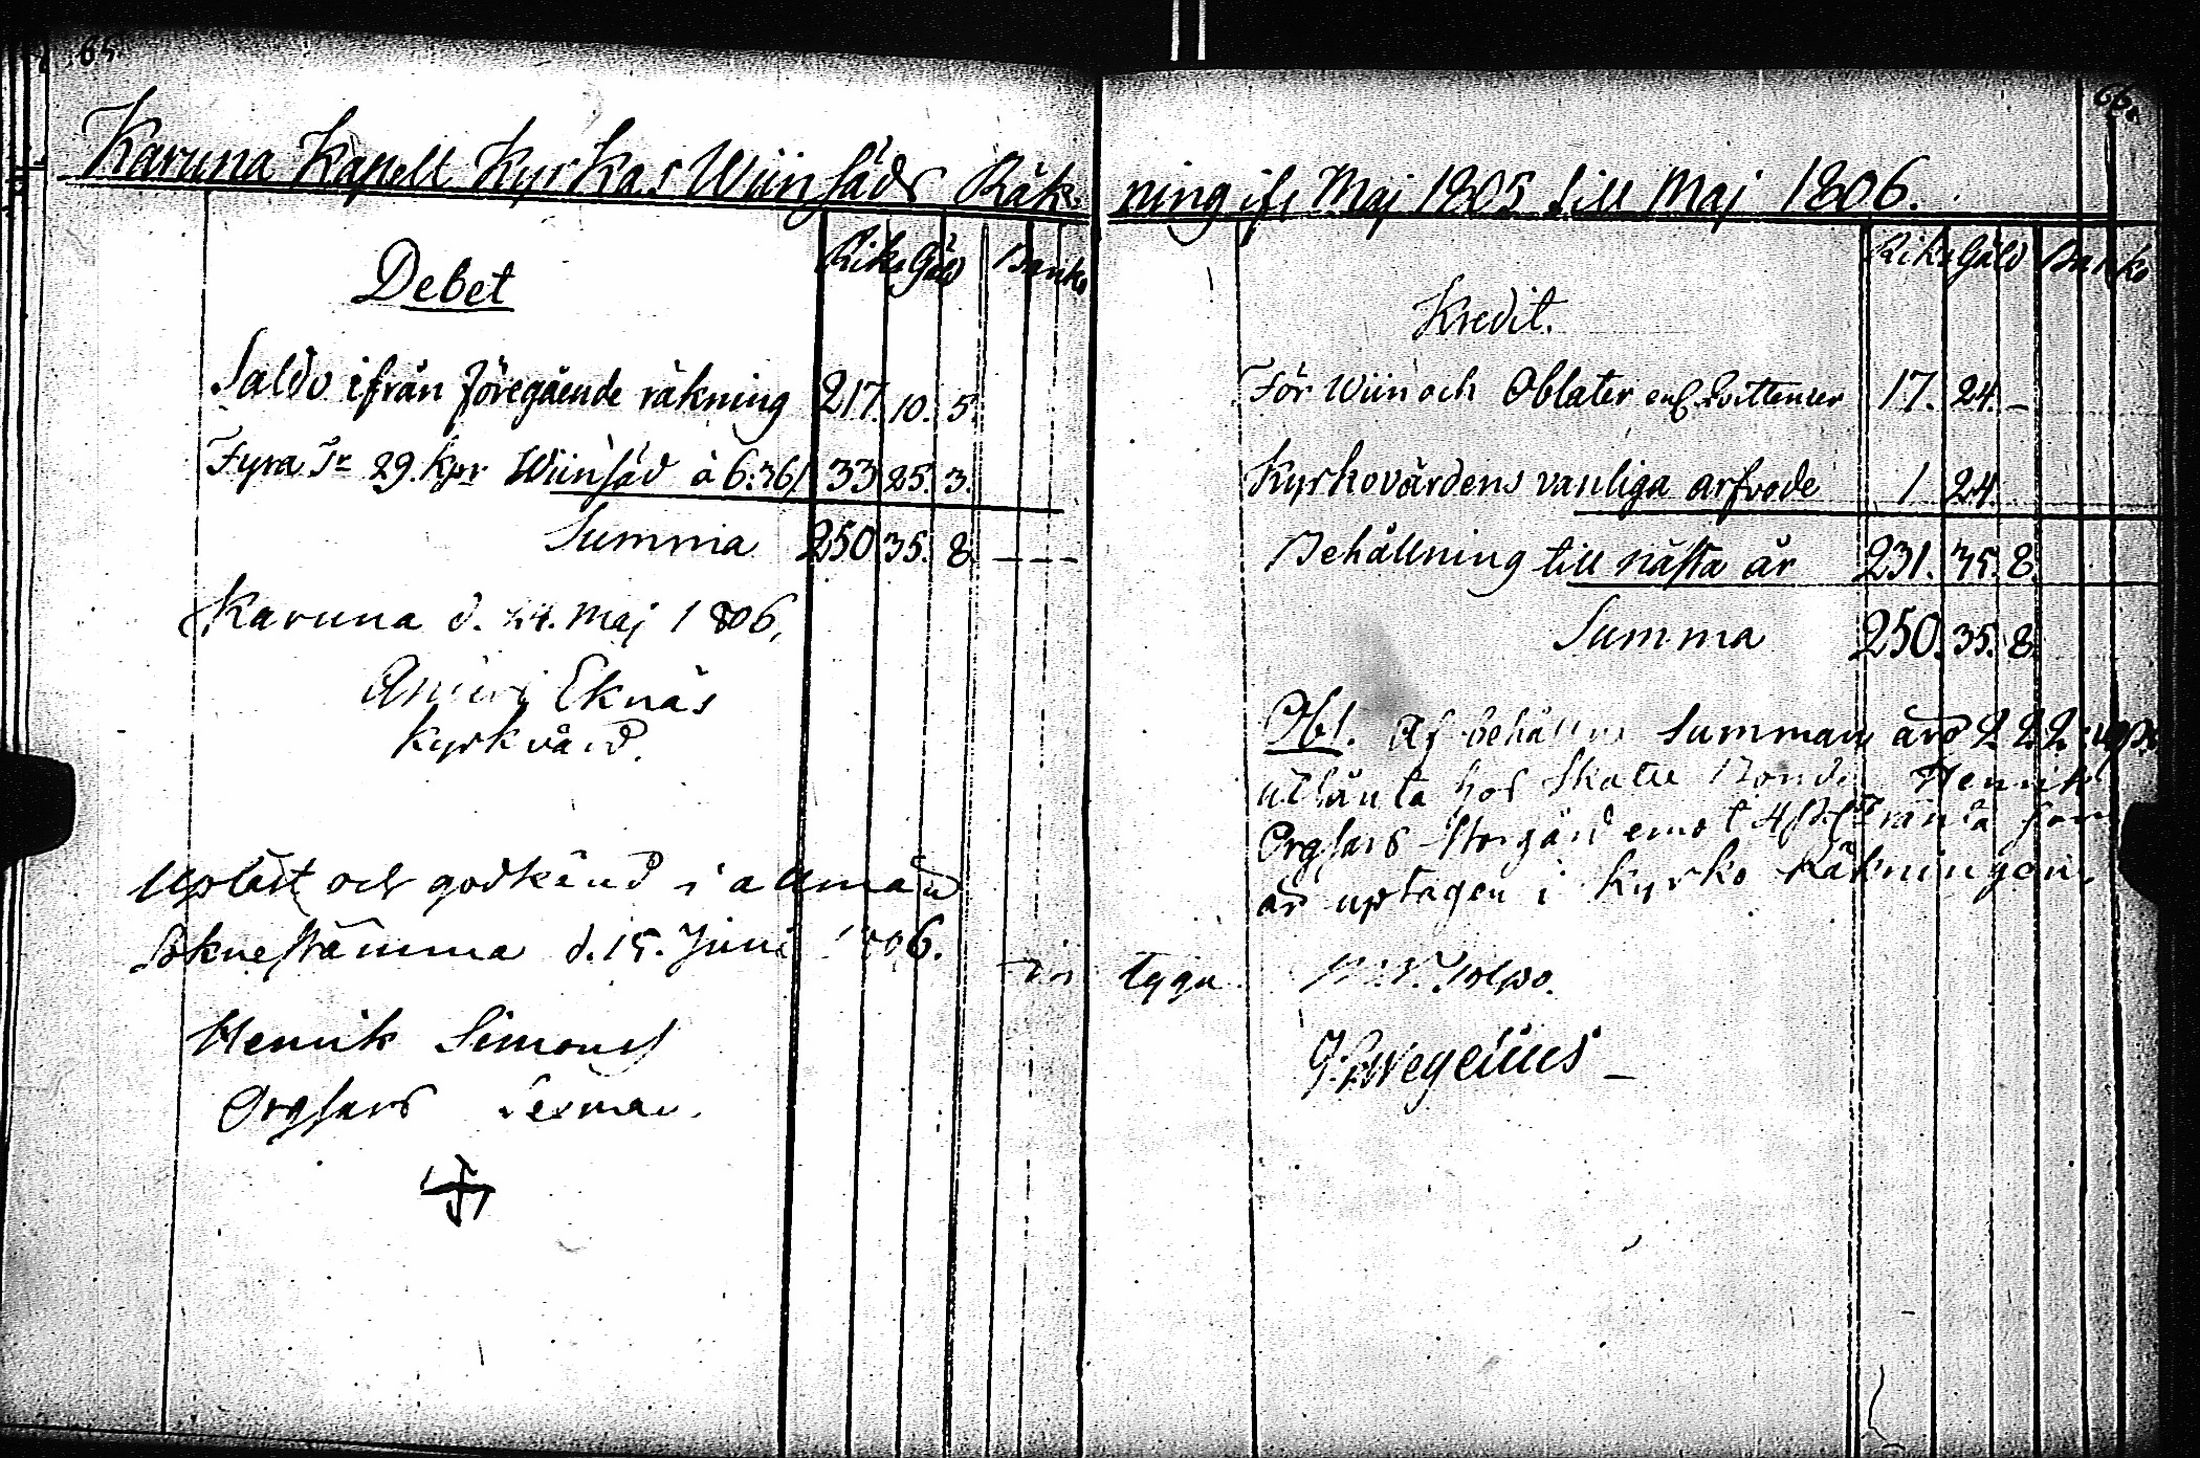 65.
Karuna Kapell Kyrkas Wiinsäds Räk-
Riks Gäld Banko
Debet
Saldo ifrån föregående räkning 217. 10. 5.
Fyra Tr 29. kpr Wiinsäd à 6:36/ 33 25. 3.
Summa 250 35. 8. - - -
Karuna d. 24. Maj 1806.
Eknäs
Kyrkvärd.
Upläst och godkänd i allmän
Soknestämma d. 15. Juni 1806.
Henrik Simons
Orgsars Sexman.
66.
ning ifr Maj 1805 till Maj 1806.
Riks Gäld Banko
Kredit.
För Wiin och Oblater enl. Qvittencer 17. 24. -
Kyrkovärdens vanliga arfvode 1 24.
Behållning till nästa år 231. 35. 8.
Summa 250. 35. 8.
Obs. Af behållna Summan äro 222
utlånta hos Skatte Bonde Henrik
Orgsars Storgård emot som
är uptagen i Kyrko Räkningen.
tyga
G: Wegelius